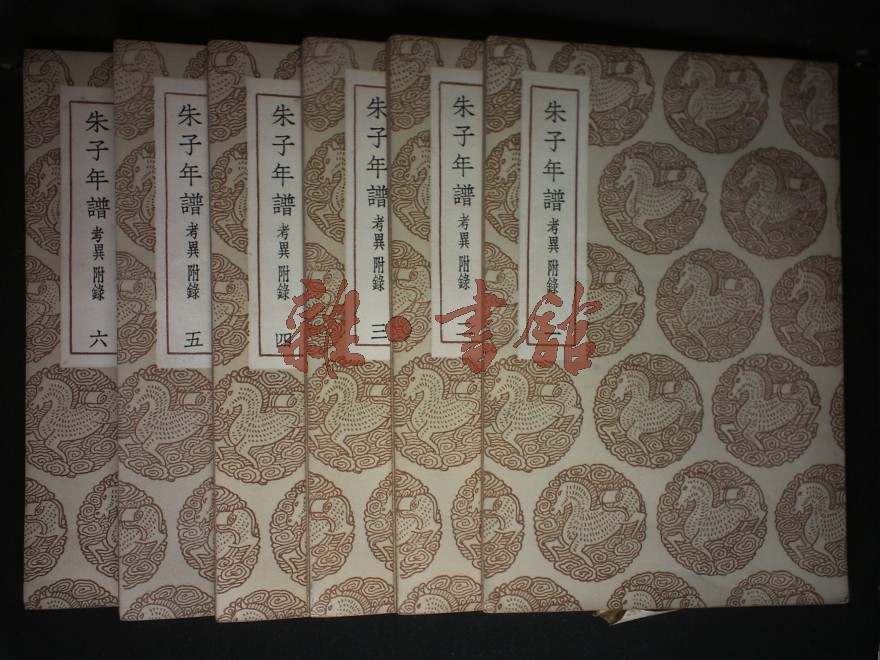 朱子年譜 考異 附錄
朱子年譜 考異 附錄
朱子年譜 考異 附錄 三
朱子年譜 考異 附錄 四
朱子年譜 考異 附錄 五
朱子年譜 考異 附錄 六
雜·書館